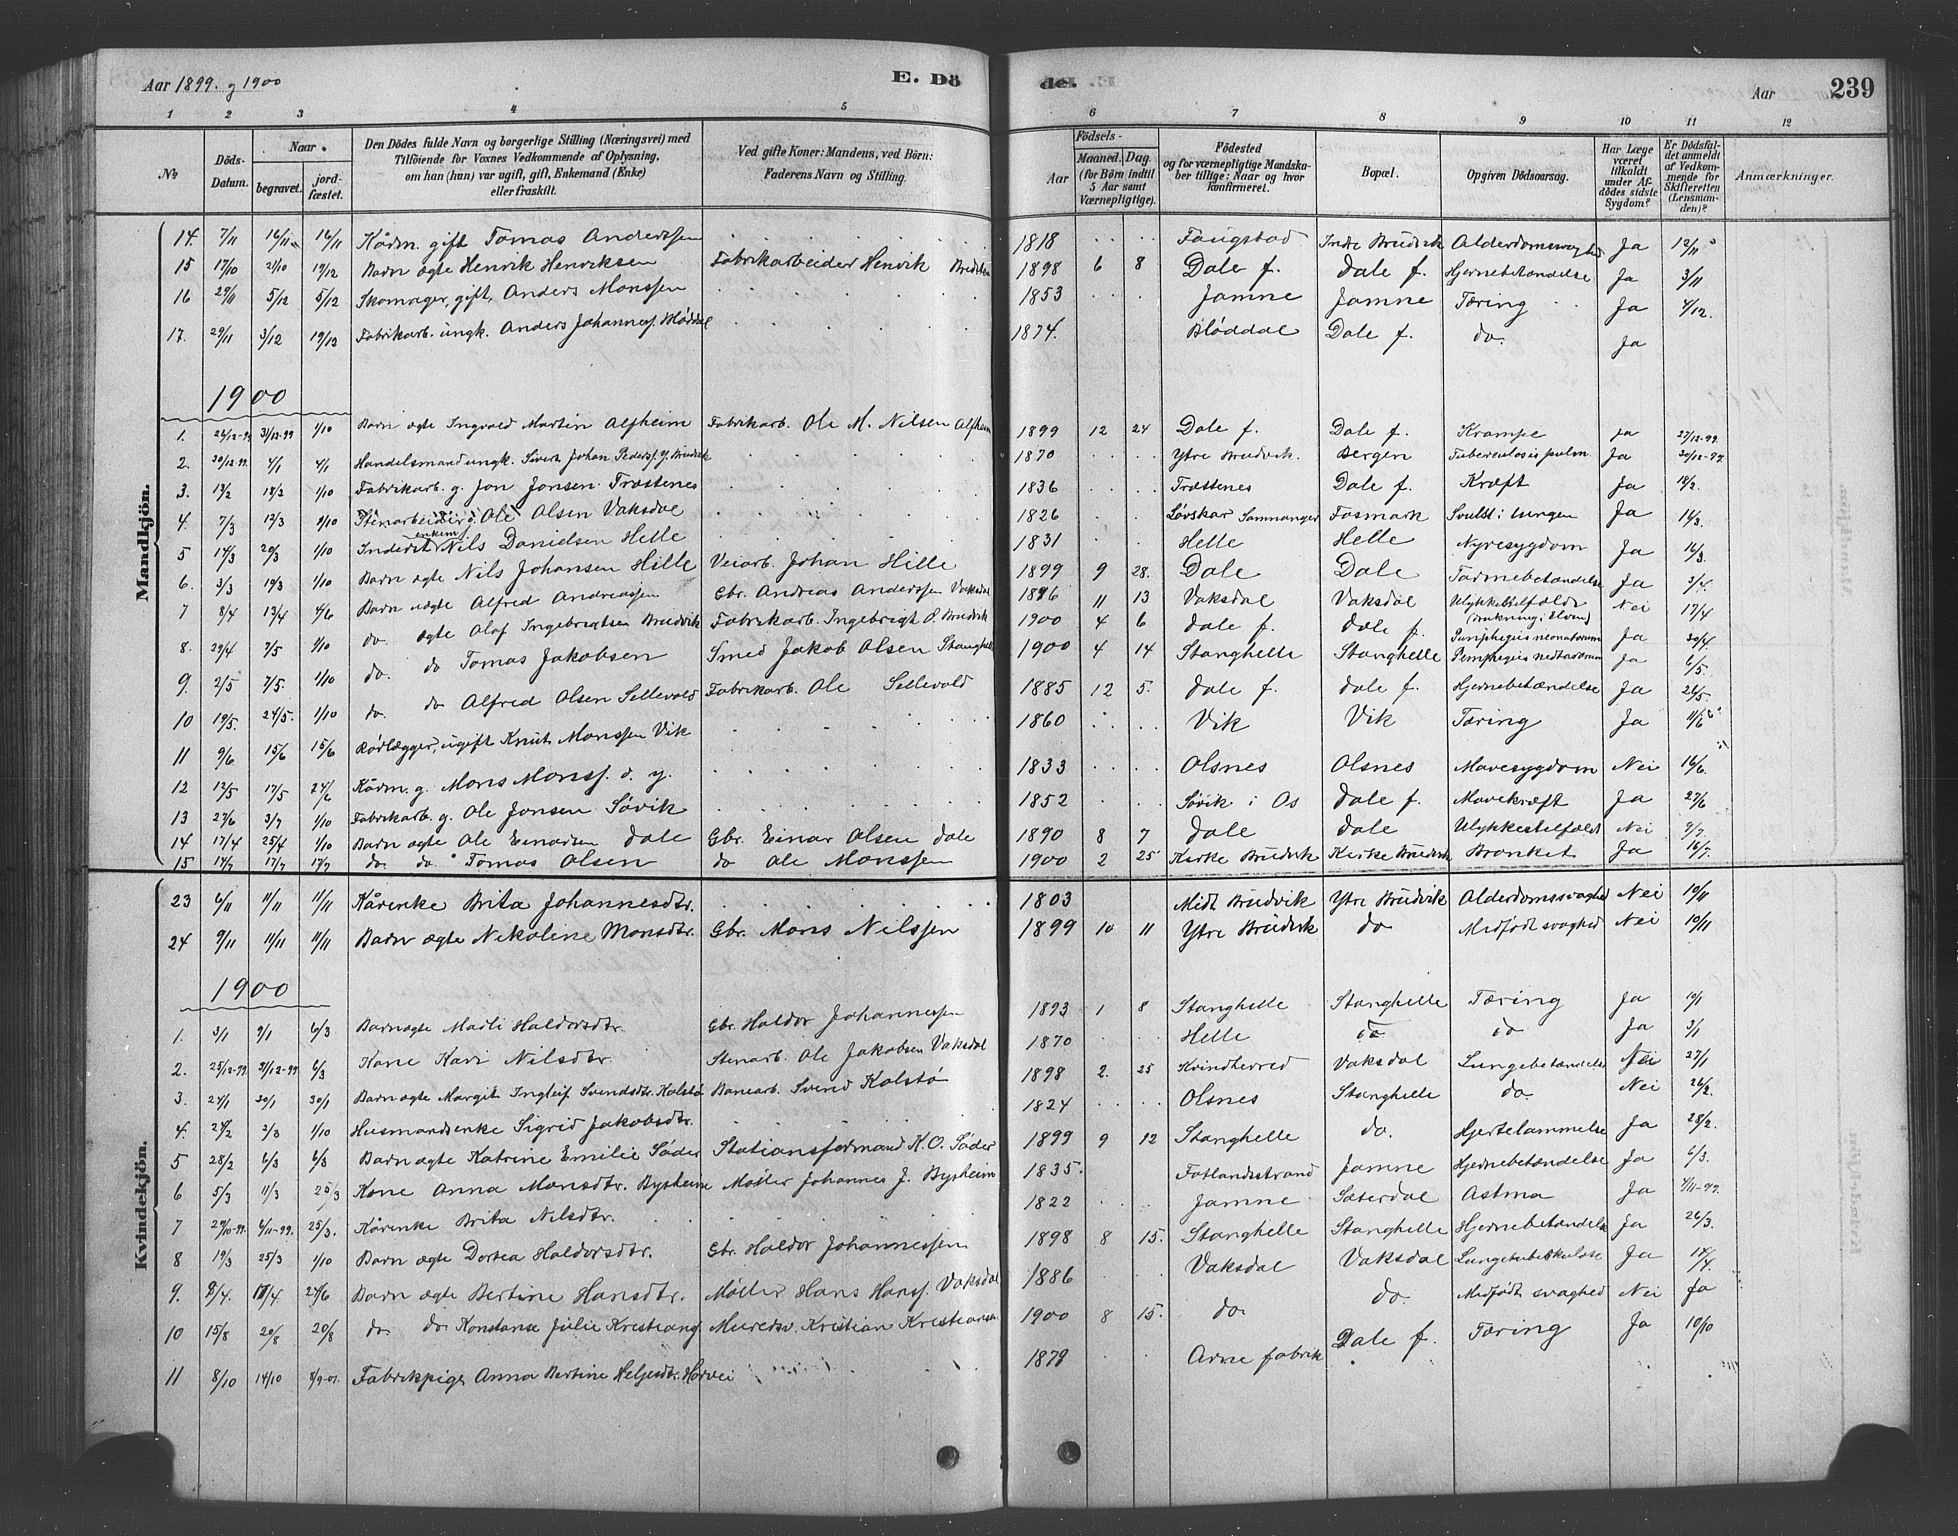 Aar 1899 og 1900 E. Dö
de. Aar 239
1 2 3 4 5 6 7 8 9 10 11 12
No
Döds-Datum.
Naar
begravet.
jordfæstet.
Den Dödes fulde Navn og borgerlige Stilling (Næringsvei) med
Tilföiende for Voxnes Vedkommende af Oplysning,
om han (hun) var ugift, gift, Enkemand (Enke)
eller fraskilt.
Ved gifte Koner: Mandens, ved Börn:
Faderens Navn og Stilling.
Födsels-
Aar Maaned. Dag.
(for Börn indtil
5 Aar samt
Værnepligtige).
Födested
og for værnepligtige Mandskaber tillige: Naar og hvor
konfirmeret.
Bopæl.
Opgiven Dödsaarsag.
Har Læge
været
tilkaldt
under Afdödes sidste
Sygdom?
Er Dödsfaldet anmeldt
af Vedkommende for
Skifteretten
(Lensmanden)?
Anmærkninger.
Mandkjön.
14. 7/11 16/11 16/11 Kårm. gift Tomas Anderssen 1818 Faugstad Indre Brudvik Alderdomssvaghed Ja 12/11
15 17/10 21/10 19/12 Barn ægte Henrik Henriksen Fabrikarbeider Henrik 1898 6 8 Dale f. Dale f. Hjernebetændelse Ja 3/11
16 29/11 5/12 5/12 Skomager, gift, Anders Monssen 1853 Jamne Jamne Tæring Ja 4/12.
17. 29/11 3/12 19/12 Fabrikarb. ungk. Anders Johanness. Bløddal 1874. Bløddal Dale f. do. Ja
1900
1. 26/12-99 31/12-99 1/10 Barn ægte Ingvald Martin Alfheim Fabrikarb. Ole M. Nilsen Alfheim 1899 12 24 Dale f. Dale f. Krampe Ja 27/12-99.
2. 30/12-99. 4/1 4/1 Handelsmand ungk. Sivert Johan Pederss. Y. Brudvik 1870 Ytre Brudvik. Bergen Tuberculosis pulm. Ja 30/12-99.
3. 13/2 18/2 1/10 Fabrikarb. g. Jon Jonsen Træstenes 1836 Træstenes Dale f. Kræft Ja 18/2.
4. 7/3 12/3 1/10 Stenarbeider g. Ole Olsen Vaksdal 1826 Løvskar Samnanger Fosmark Svulst i lungen Ja 14/3.
5 14/3 20/3 1/10 Inderst enkem. Nils Danielsen Helle 1831 Helle Helle Nyresygdom Ja 16/3.
6. 3/3 19/3 1/10 Barn ægte Nils Johansen Hille Veiarb. Johan Hille 1899 9 28. Dale Dale Tarmebetændelse Ja 3/4.
7 8/4 13/4 4/6 Barn uægte Alfred Andreassen Gbr. Andreas Anderssen Vaksdal 1896 11 13 Vaksdal Vaksdal Ulykkestilfælde (drukning i Elven) Nei 17/4
8. 29/4 7/5 1/10 do. ægte Olaf Ingebrigtsen Brudvik Fabrikarb. Ingebrigt O. Brudvik 1900 4 6 Dale f. Dale f. Pemphigus neonatorum Ja 30/4.
9. 2/5 7/5. 1/10 do. do Tomas Jakobsen Smed Jakob Olsen Stanghelle 1900 4 14 Stanghelle Stanghelle Pemphigus neonatorum Ja 6/5.
10 19/5. 24/5. 1/10 do. do Alfred Olsen Sellevold Fabrikarb. Ole Sellevold 1885 12 5. Dale f. Dale f. Hjernebetændelse Ja 26/5.
11 9/6 15/6 15/6 Rørlægger, ugift Knut Monssen Vik 1860 Vik Vik Tæring Ja 11/6
12 12/5 17/5 24/6 Kårm. g. Mons Monss. d. y. 1833 Olsnes Olsnes Mavesygdom Nei 16/6.
13 27/6 3/7 1/10 Fabrikarb. g. Ole Jonsen Søvik 1852 Søvik i Os Dale f. Mavekræft Ja 27/6
14 17/4 25/4 1/10 Barn ægte Ole Einarsen Dale Gbr. Einar Olsen Dale 1890 8 7 Dale Dale Ulykkestilfælde Nei 9/7.
15 14/7 17/7 17/7 do. do. Tomas Olsen do Ole Monssen 1900 2 25 Kirke Brudvik Kirke Brudvik Bronkit Ja 16/7.
Kvindekjön.
23 6/11 11/11 11/11 Kårenke Brita Johannesdtr. 1803 Midt Brudvik Ytre Brudvik Alderdomssvaghed Nei 10/11
24 9/11 11/11 11/11 Barn ægte Nikoline Monsdtr. Gbr. Mons Nilssen 1899 10 11 Ytre Brudvik do Medfødt svaghed Nei 10/11
1900
1. 3/1 9/1 6/3 Barn ægte Madli Haldorsdtr. Gbr. Haldor Johannessen 1893 1 8 Stanghelle Stanghelle Tæring Ja 10/1
2. 25/12-99. 31/12-99 6/3 Kone Kari Nilsdtr. Stenarb. Ole Jakobsen Vaksdal 1870 Helle do do Ja 3/1
3. 24/1 30/1 30/1 Barn ægte Margit Ingleif Svendsdtr. Kolstø Banearb. Svend Kolstø 1898 2. 25 Kvindherred Vaksdal Lungebetændelse Nei 27/1
4. 24/2 2/3 1/10 Husmandsenke Sigrid Jakobsdtr. 1824 Olsnes Stanghelle do. Nei 26/2.
5 28/2 6/3 6/3 Barn ægte Katrine Emilie Søder Stationsformand K. O. Søder 1899 9 12 Stanghelle do. Hjertelammelse Ja 28/2.
6 5/3 11/3 25/3 Kone Anna Monsdtr. Bysheim Møller Johannes J. Bysheim 1835. Fotlandsstrand Jamne Hjernebetændelse Ja 6/3.
7 29/10-99. 6/11-99. 25/3. Kårenke Brita Nilsdtr. 1822 Jamne Sæterdal Astma Ja 4/11-99.
8 19/3 25/3 1/10 Barn ægte Dortea Haldorsdtr. Gbr. Haldor Johannessen 1898 8 15. Stanghelle Stanghelle Hjernebetændelse Ja 26/3.
9. 8/4. 17/4. 24/6 Barn ægte Bertine Hansdtr. Møller Hans Hanss. Vaksdal 1886 Vaksdal Vaksdal Lungetuberkulose Ja 14/4.
10 15/8 20/8 20/8 do do Konstanse Julie Kristians Muresv. Kristian Kristiansen 1900 8 15. do do. Medfødt svaghed Nei Ja
11 8/10 14/10 8/9-01. Fabrikpige Anna Bertine Heljesdtr. Horvei 1879 Arne fabrik Dale f. Tæring Ja 10/10